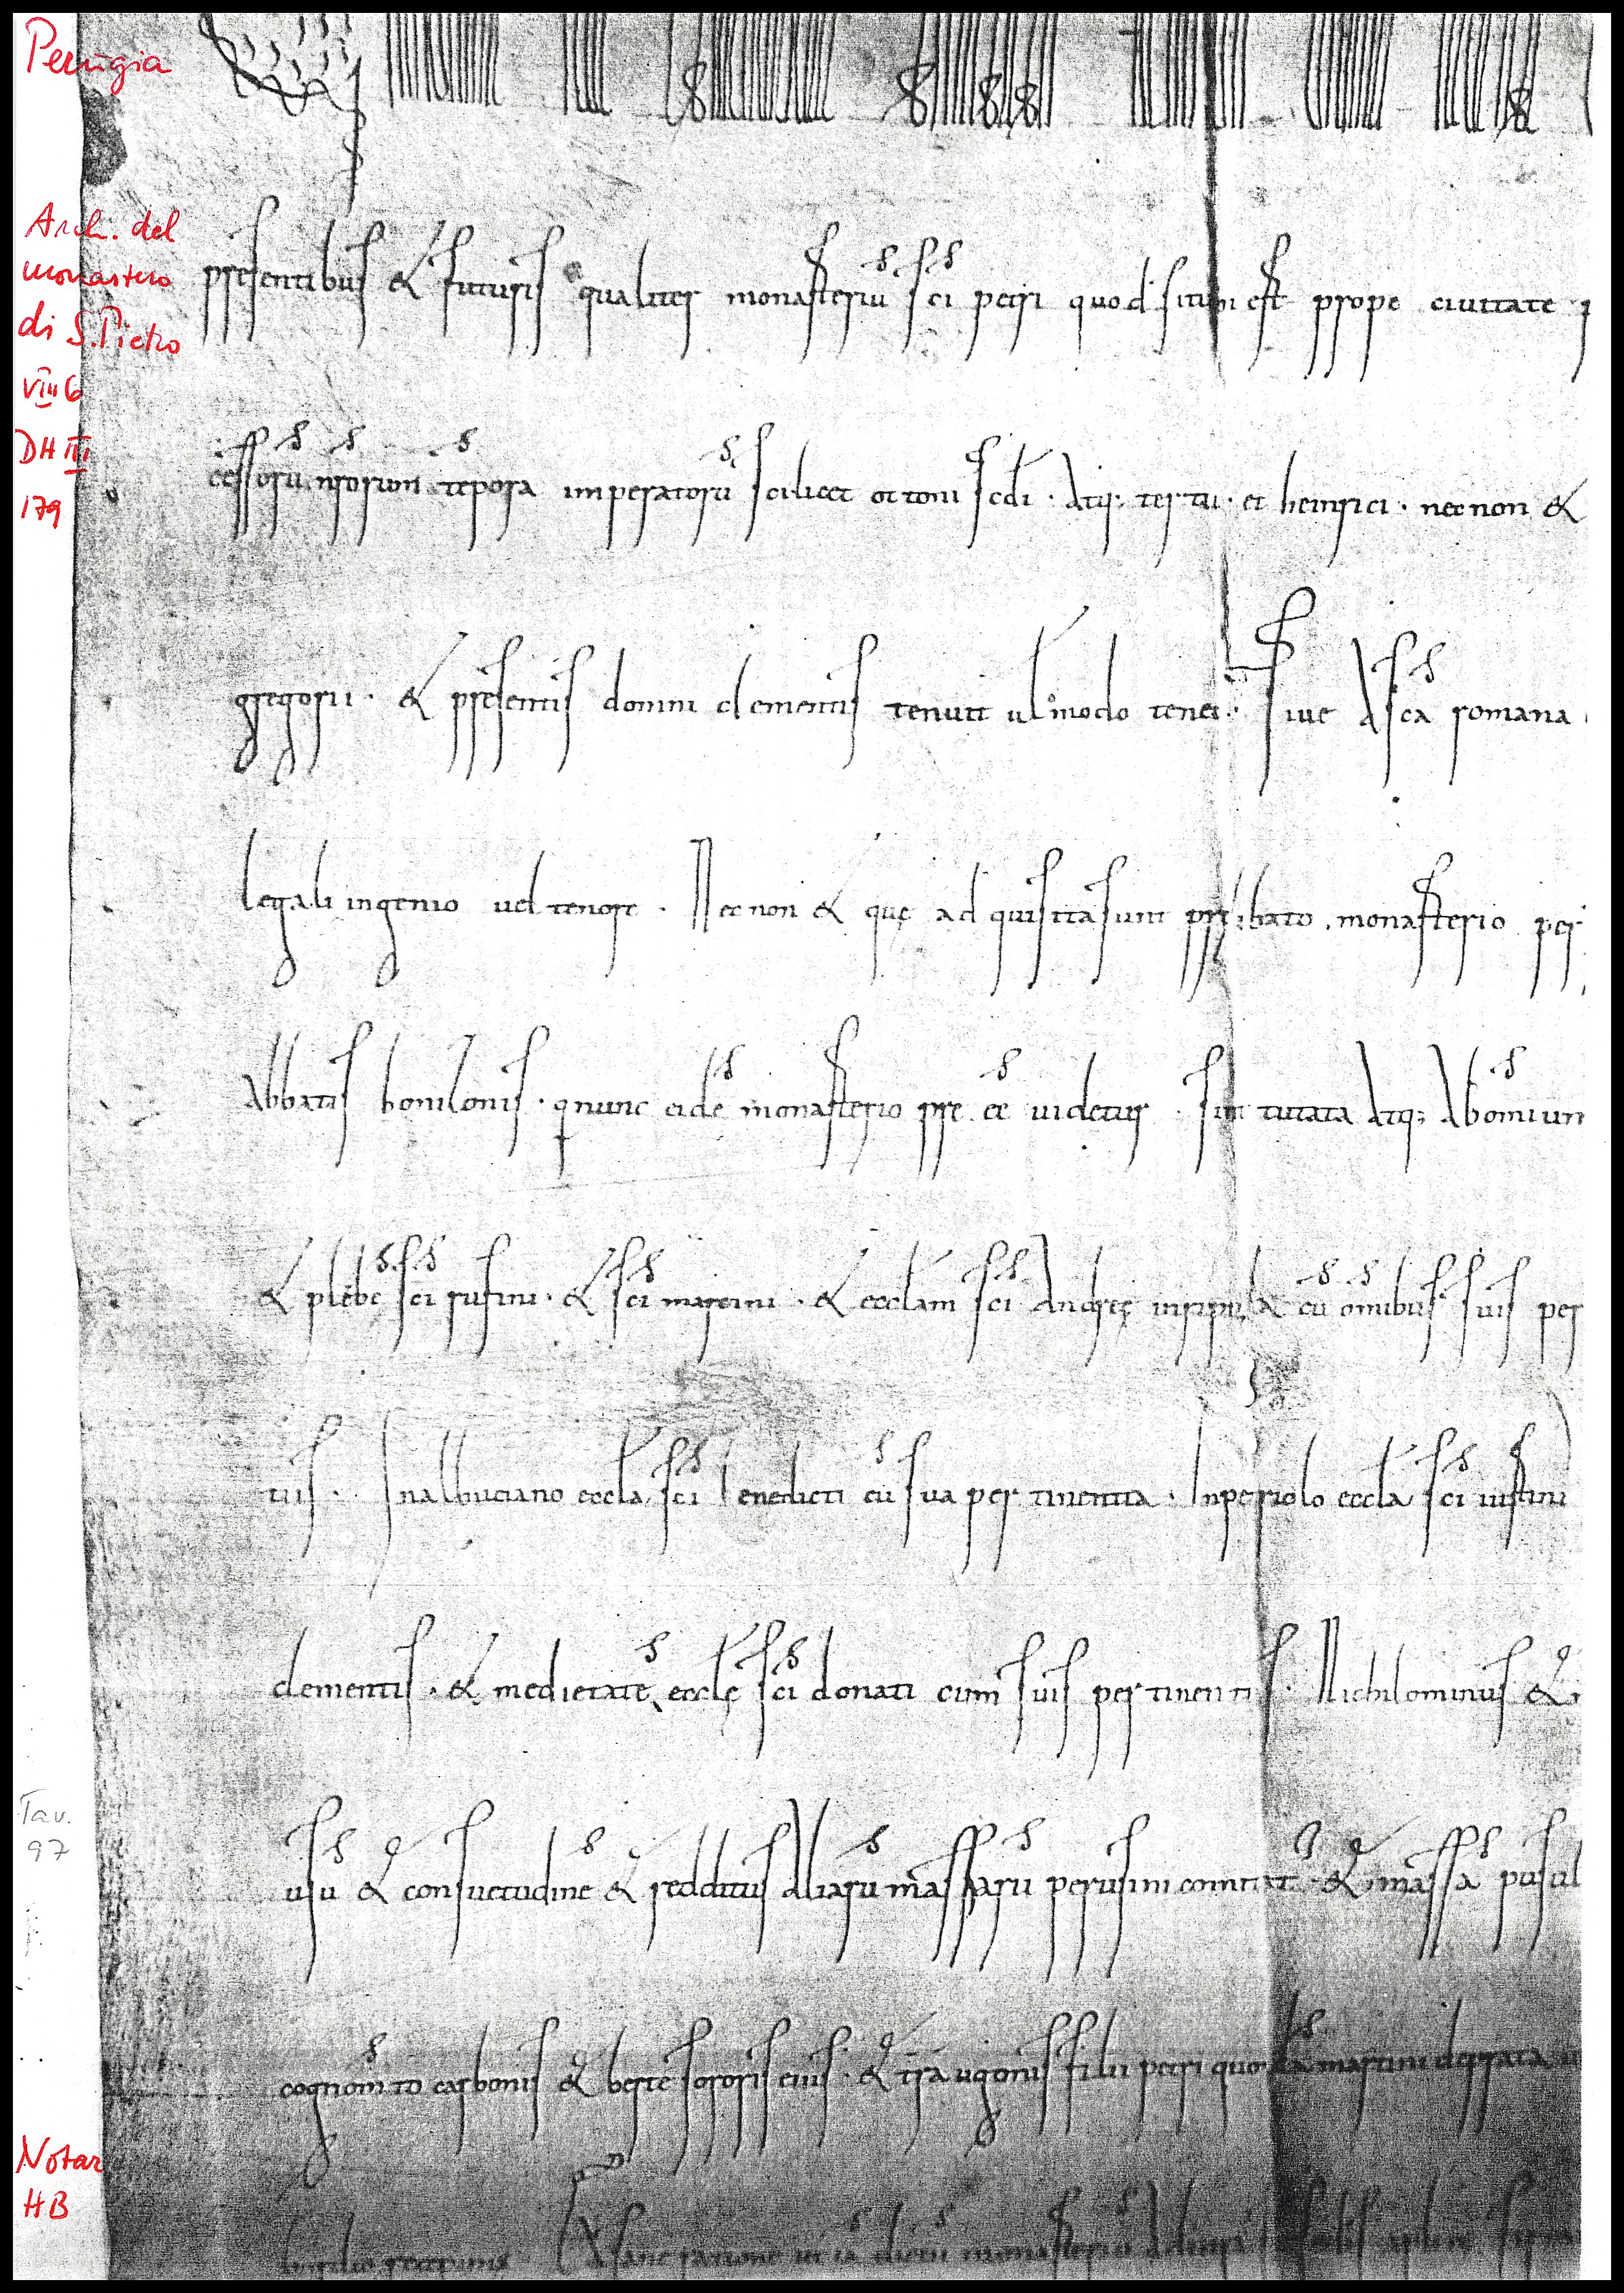 Perugia
Arch. del
monastero
di S. Pietro
VIII 6
DH III
179
presentibus & futuris qualiter monasteriu sci petri quod situm est prope ciuitate p
cessoru nrorum tepora imperatoru scilicet ottoni scdi · atq; tertii · et heinrici · nec non &
gregorii · & presentis domni clementis tenuit ul modo tenet · siue a sca romana
legali ingenio uel tenore · Nec non & quę ad quisita sunt prelibato monasterio per
abbatis bonizonis · q nunc eide monasterio pre ee uidetur · sint tutata atq; ab omi un
& plebe sci rufini · & sci martini · & ecclam sci andreę in ripula cu omibus suis per
tiis · In albuciano eccla sci benedicti cu sua pertinentia · In petriolo eccla sci iustini
clementis · & medietate ecclę sci donati cum suis pertinentiis · Nichilominus &
usu & consuetudine & redditus aliaru massaru perusini comitat & massa pusil
cognomto carbonis & berte sororis eius · & tra ugonis filii petri quonda martini de prata
sane ratione ut ia dictu monasteriu
Tav.
97
Notar
HB